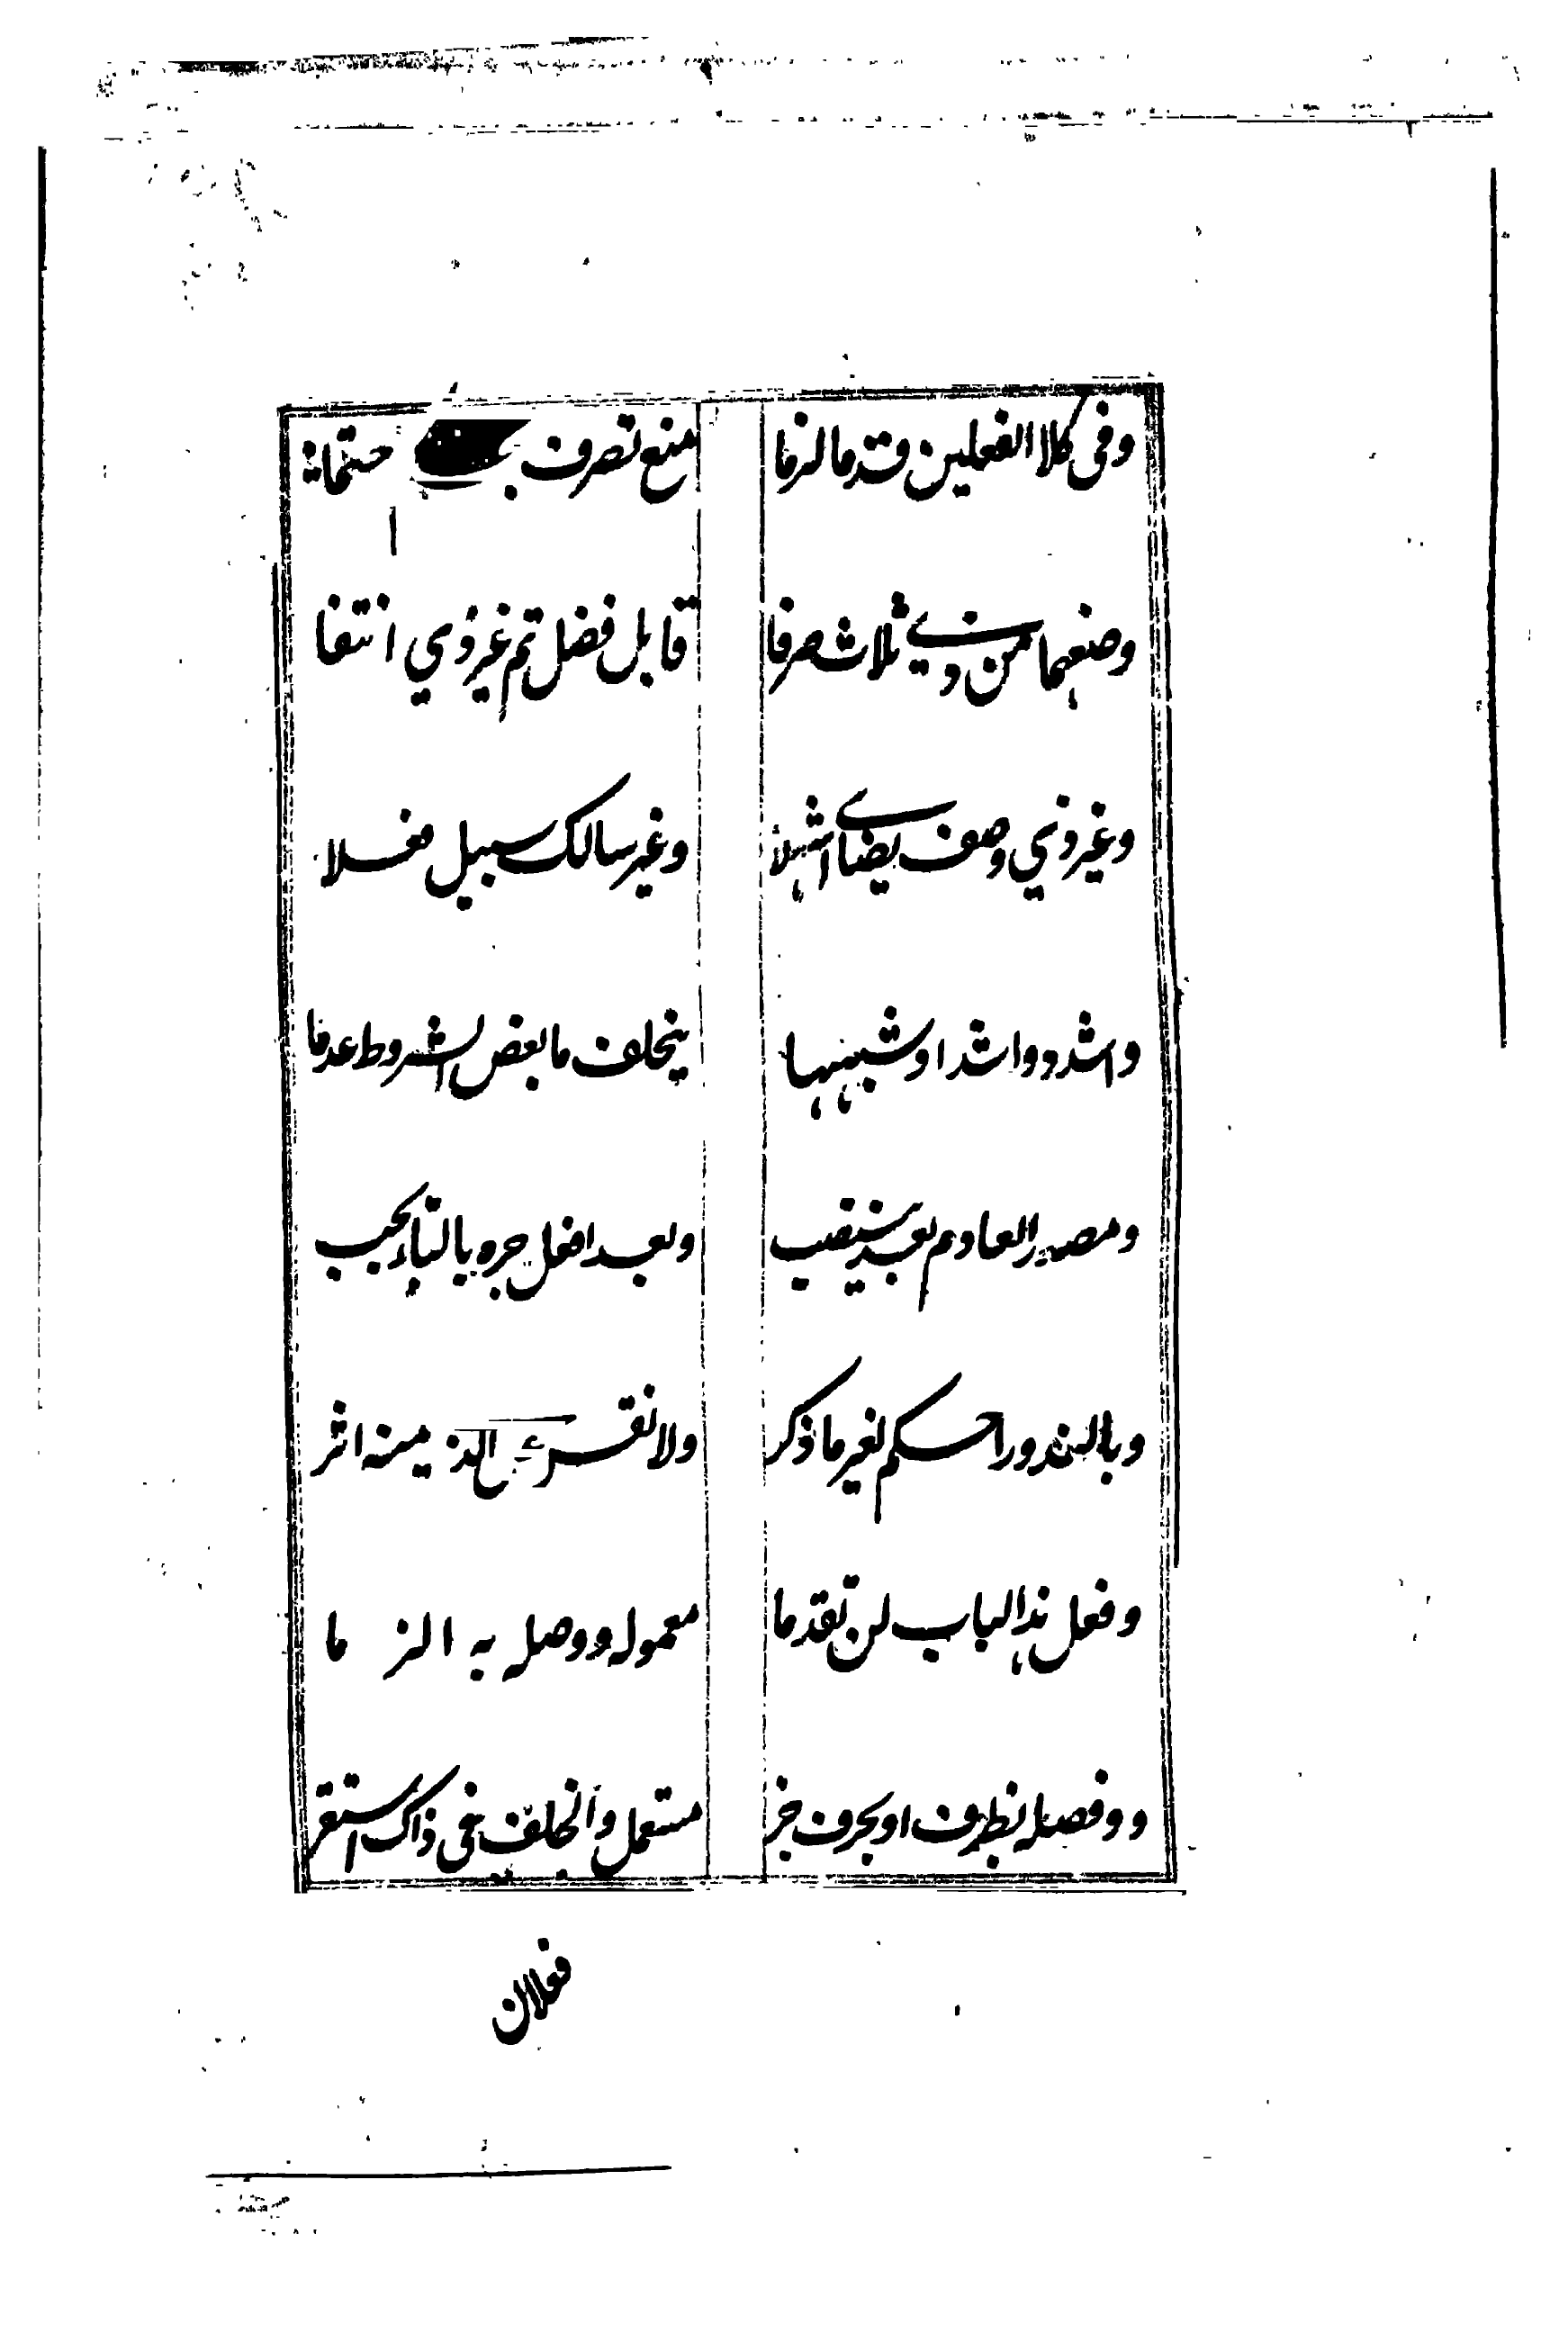 وفى كلا الفعلين قدما لزما منع تصرف حتما
وصغهما من ذي ثلاث صرفا قابل فضل تم غير ذي انتفا
وغير ذي وصف يضاي اشهلا وغير سالك سبيل فعلا
واشدد واشد او شبههما يخلف ما بعض الشروط عدما
ومصدر العادم بعد ينتصب وبعد افعل جره بالباء يجب
وبالندور احكم لغير ما ذكر ولا تقس على الذ منه اثر
وفعل هذا الباب لن تقدما معموله ووصله به الز ما
و وفصله بظرف او بحرف جر مستعمل والخلف فى ذاك استقر
فعلان